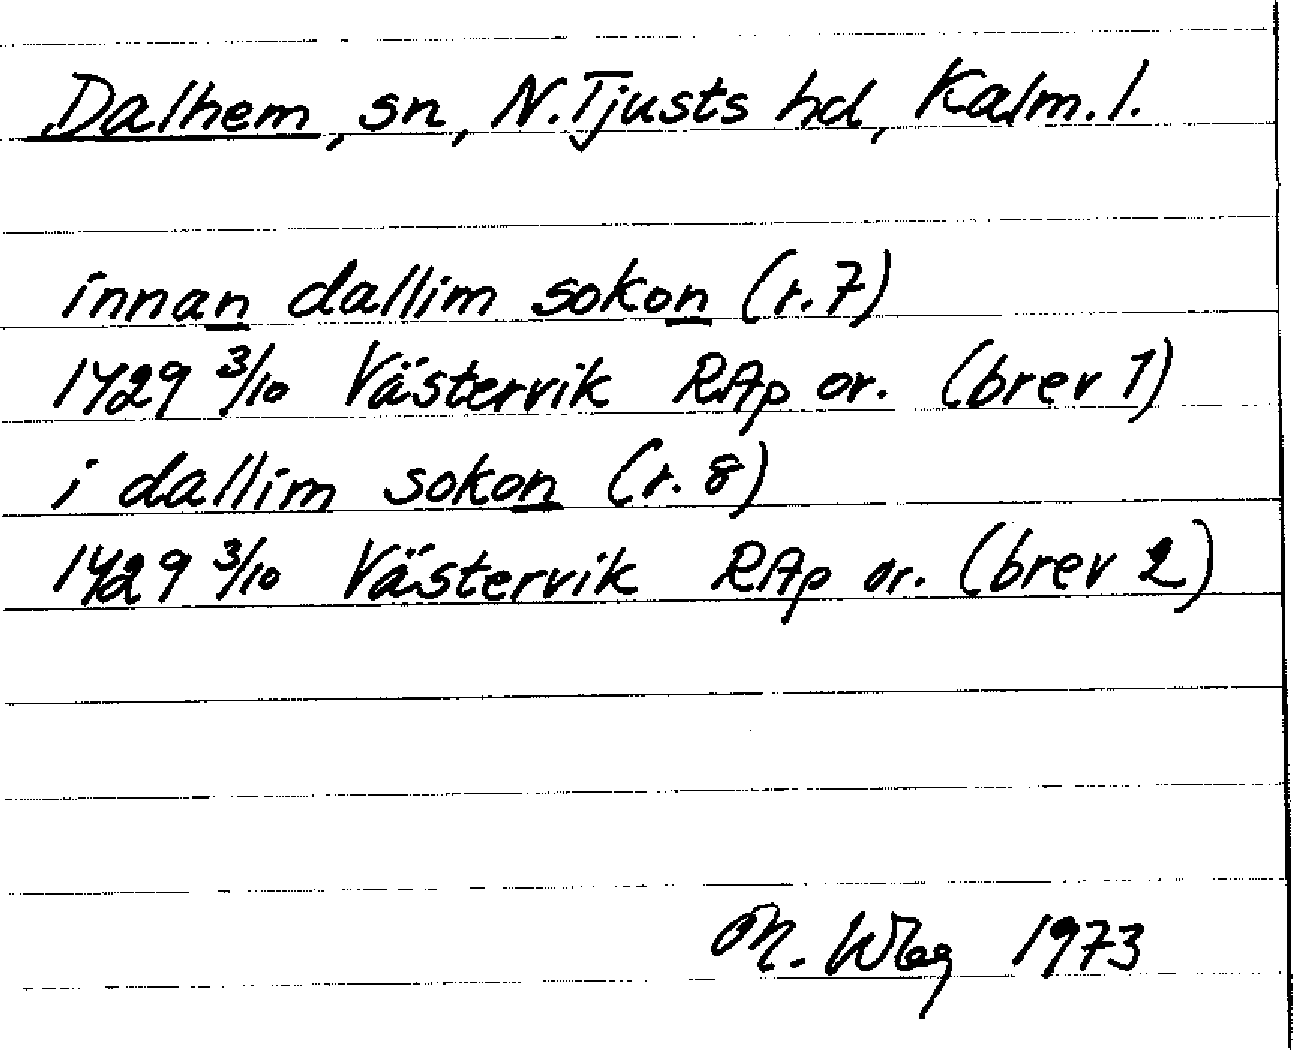 Dalhem, sn, N. Tjusts hd, Kalm. l.
innan dallim sokon (r. 7)
1429 3/10 Västervik RAp or. (brev 1)
i dallim sokon (r. 8)
1429 3/10 Västervik RAp or. (brev 2)
M. 1973